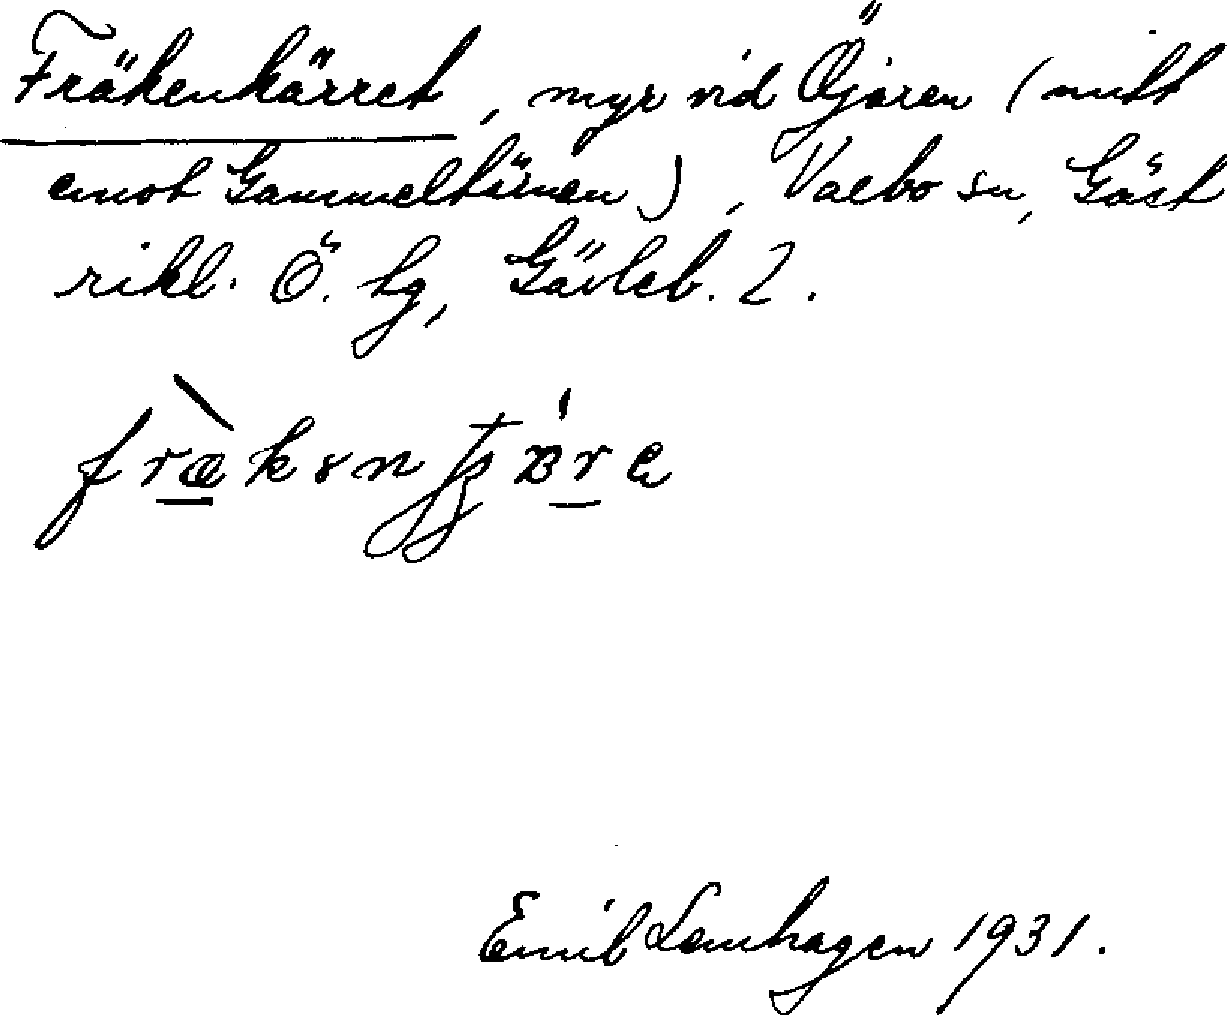 Fräkenkärret, myr vid Öjaren (mitt
emot Gammeltärnen), Valbo sn, Gäst
rikl. Ö. tg, Gävleb. l.
Emil Lenhagen 1931.